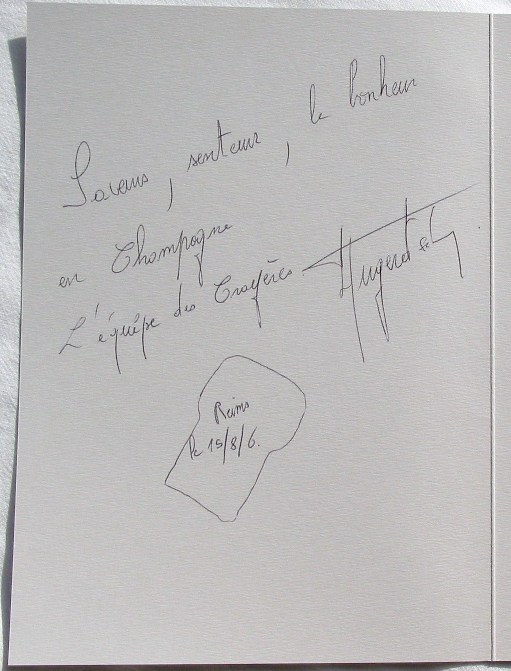 Saveurs, senteur, le bonheur
en Champagne
L'équipe des Crayères.
Reims
le 15/8/6.